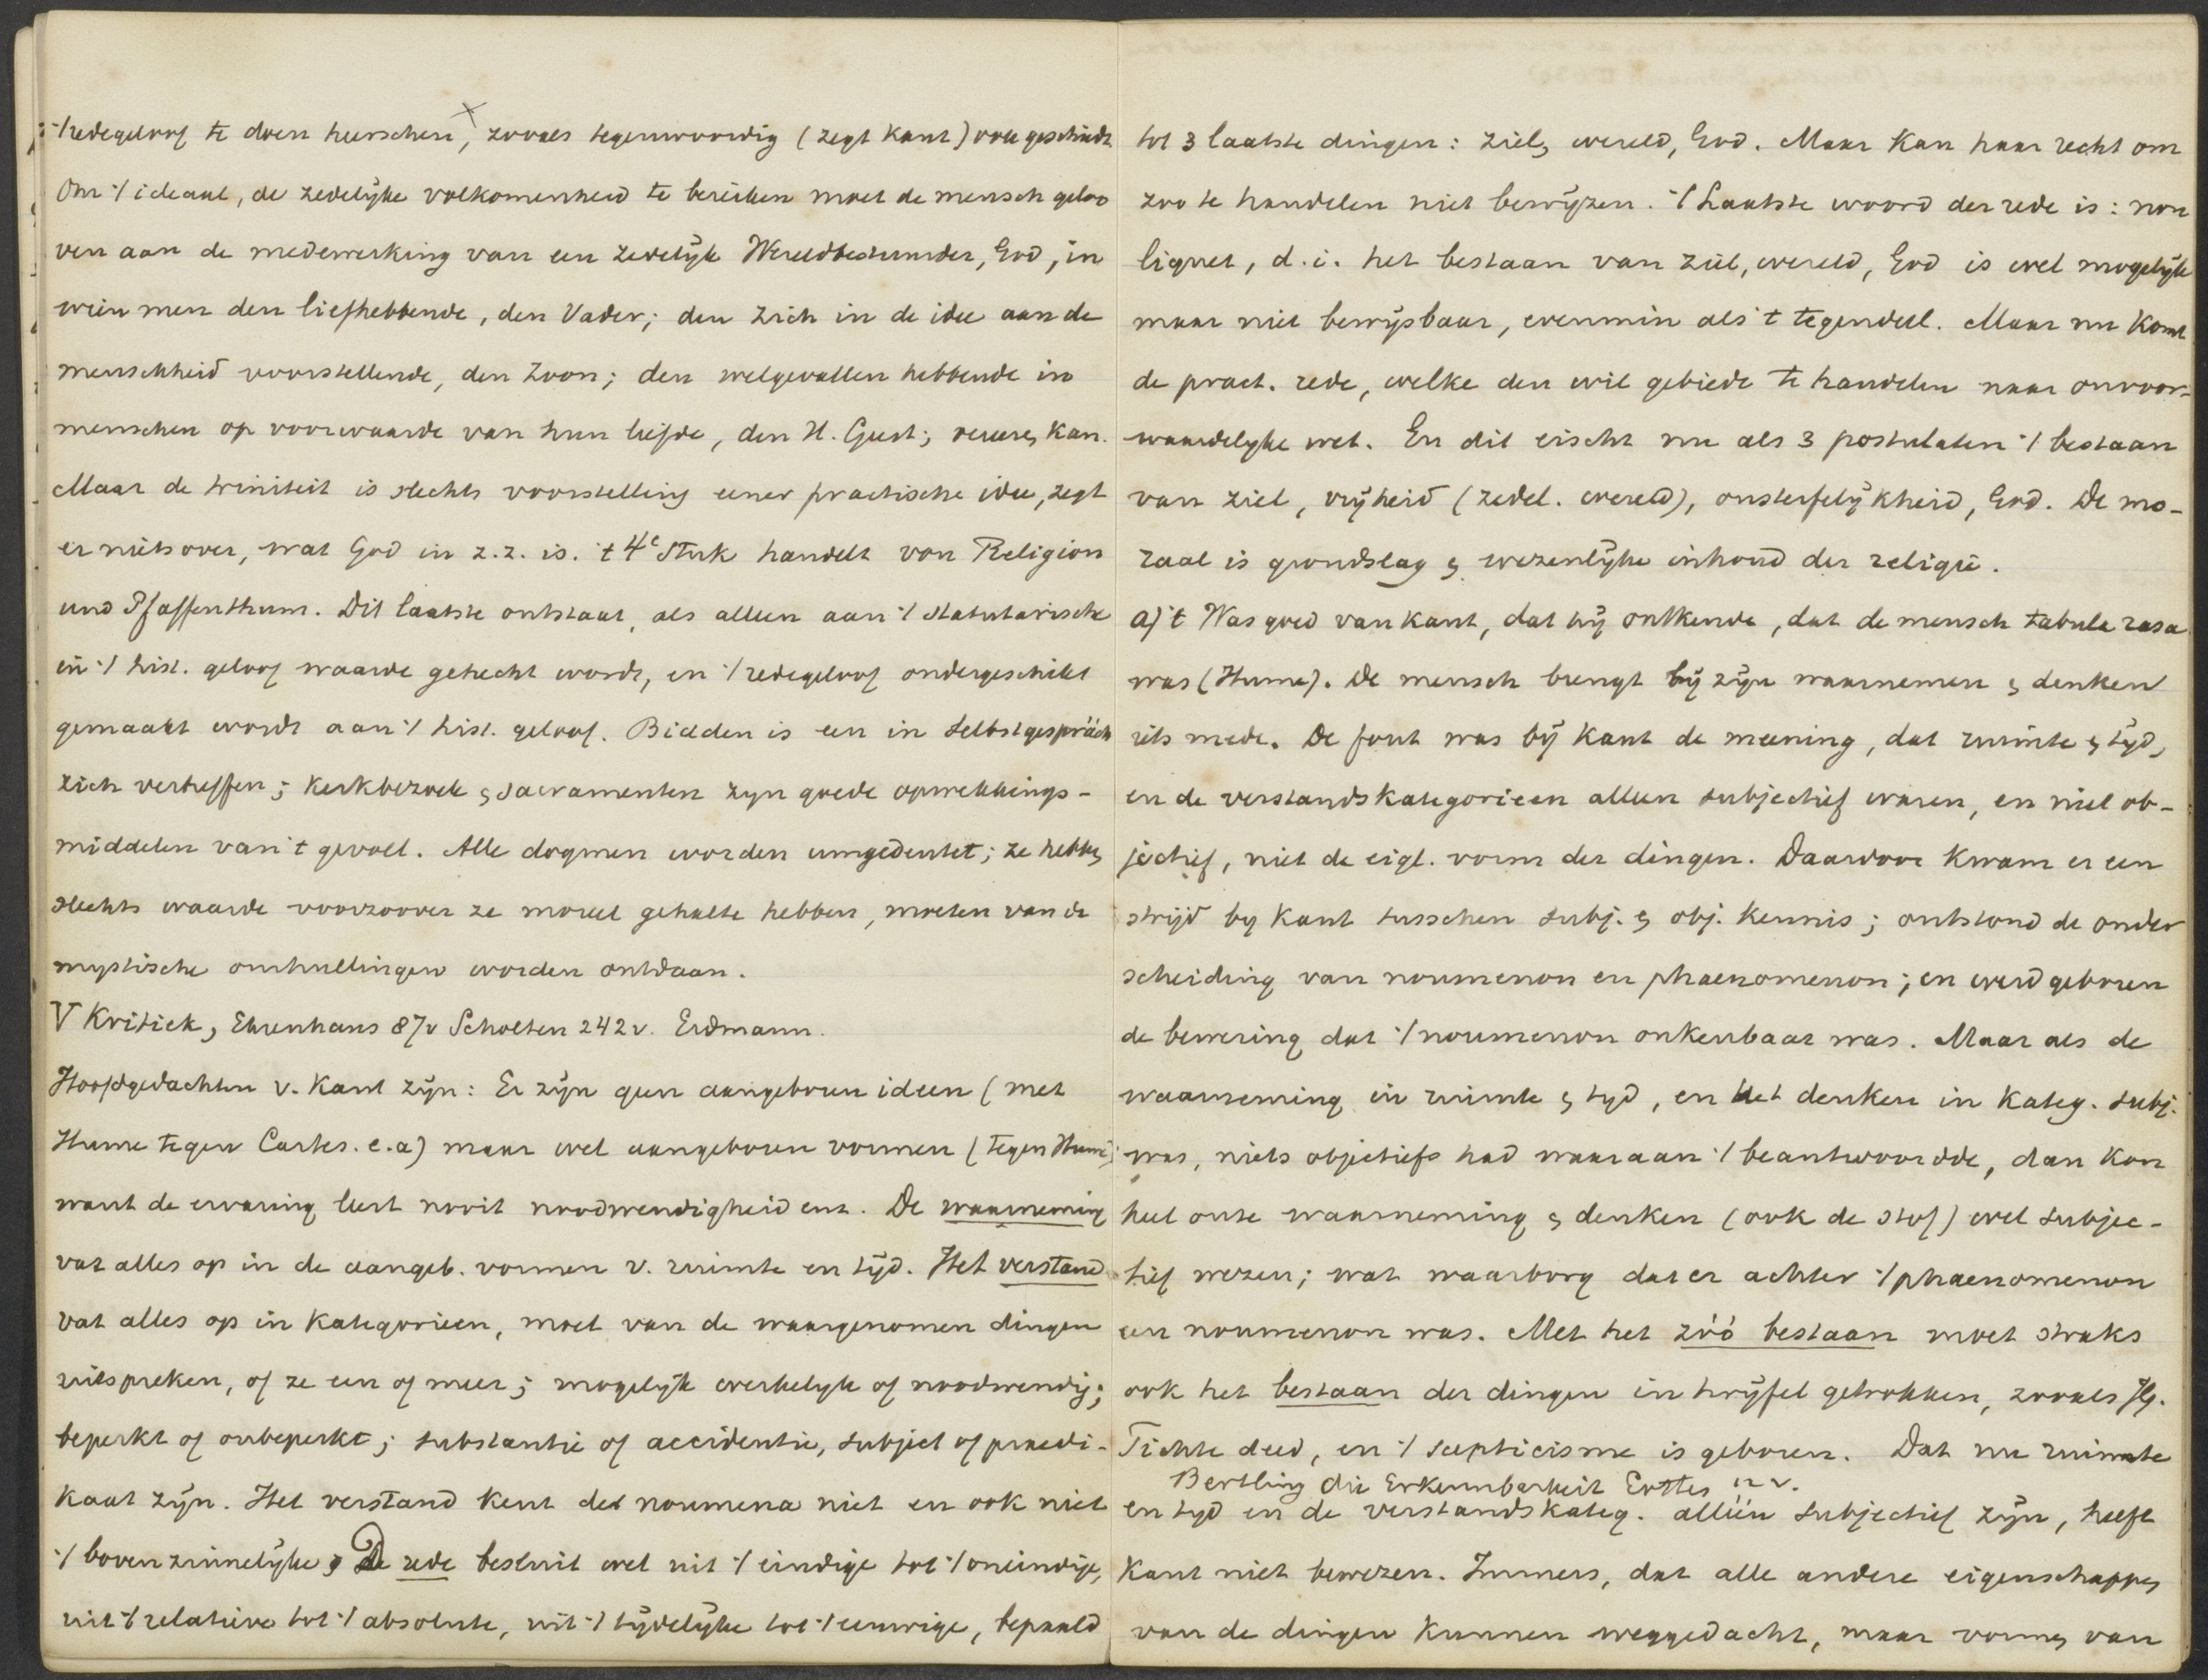 't redegeloof te doen heerschen, zooals tegenwoordig (zegt Kant) ook geschiedt.
Om 't ideaal, de zedelijke volkomenheid te bereiken moet de mensch geloo
ven aan de medewerking van een zedelijk Wereldbestuurder, God, in
wien men den liefhebbende, den Vader; den zich in de idee aan de
menschheid voorstellende, den Zoon; den welgevallen hebbende in
menschen op voorwaarde van hun liefde, den H. Geest; vereeren kan.
Maar de triniteit is slechts voorstelling eener practische idee, zegt
er niets over, wat God in z.z. is. 't 4e Stuk handelt von Religion
und Pfaffenthum. Dit laatste ontstaat, als alleen aan 't statutarische
in 't hist. geloof waarde gehecht wordt, en 't redegeloof ondergeschikt
gemaakt wordt aan 't hist. geloof. Bidden is een in Selbstgespräch
zich vertreffen; Kerkbezoek & sacramenten zyn goede opwekkings-
middelen van 't gevoel. Alle dogmen worden umgedeutet; ze hebben
slechts waarde voorzoover ze moreel gehalte hebben, moeten van de
mystische omhullingen worden ontdaan.
V Kritiek, Ehrenhaus 87v Scholten 242v. Erdmann.
Hoofdgedachten v. Kant zijn: Er zijn geen aangeboren ideen (met
Hume tegen Cartes. e.a) maar wel aangeboren vormen (tegen Hume)
want de ervaring leert nooit noodwendigheid enz. De waarneming
vat alles op in de aangeb. vormen v. ruimte en tijd. Het verstand
vat alles op in Kategorieen, moet van de waargenomen dingen
uitspreken, of ze een of meer; mogelijk werkelyk of noodwendig;
beperkt of onbeperkt; substantie of accidentie, subject of praedi-
kaat zijn. Het verstand kent de noumena niet en ook niet
't bovenzinnelijke, De rede besluit wel uit 't eindige tot 't oneindige,
uit 't relatieve tot 't absolute, uit 't tijdelijke tot 't eeuwige, bepaald
tot 3 laatste dingen: ziel, wereld, God. Maar kan haar recht om
zoo te handelen niet bewijzen. 't Laatste woord der rede is: non
liquet, d.i. het bestaan van ziel, wereld, God is wel mogelijk
maar niet bewijsbaar, evenmin als 't tegendeel. Maar nu komt
de pract. rede, welke den wil gebiedt te handelen naar onvoor-
waardelyke wet. En dit eischt nu als 3 postulaten 't bestaan
van ziel, vrijheid (zedel. wereld), onsterfelijkheid, God. De mo-
raal is grondslag & wezenlijke inhoud der religie.
a) 't Was goed van Kant, dat hij ontkende, dat de mensch tabula rasa
was (Hume). De mensch brengt bij zijn waarnemen & denken
iets mede. De fout was bij Kant de meening, dat ruimte & tijd,
en de verstandskategorieen alleen subjectief waren, en niet ob-
jectief, niet de eigl. vorm der dingen. Daardoor kwam er een
strijd by Kant tusschen subj. & obj. kennis; ontstond de onder
scheiding van noumenon en phaenomenon; en werd geboren
de bewering dat 't noumenon onkenbaar was. Maar als de
waarneming in ruimte & tyd, en het denken in kateg. subj.
was, niets objectiefs had waaraan 't beantwoordde, dan kon
heel onze waarneming & denken (ook de stof) wel subjec-
tief wezen; wat waarborg dat er achter 't phaenomenon
een noumenon was. Met het zóó bestaan moet straks
ook het bestaan der dingen in twijfel getrokken, zooals
Fichte deed, en 't scepticisme is geboren. Dat nu ruimte
Bertling die Erkennbarkeit Gottes
en tyd en de verstandskateg. alléén subjectief zijn, heeft
Kant niet bewezen. Immers, dat alle andere eigenschappen
van de dingen kunnen weggedacht, maar vormen van